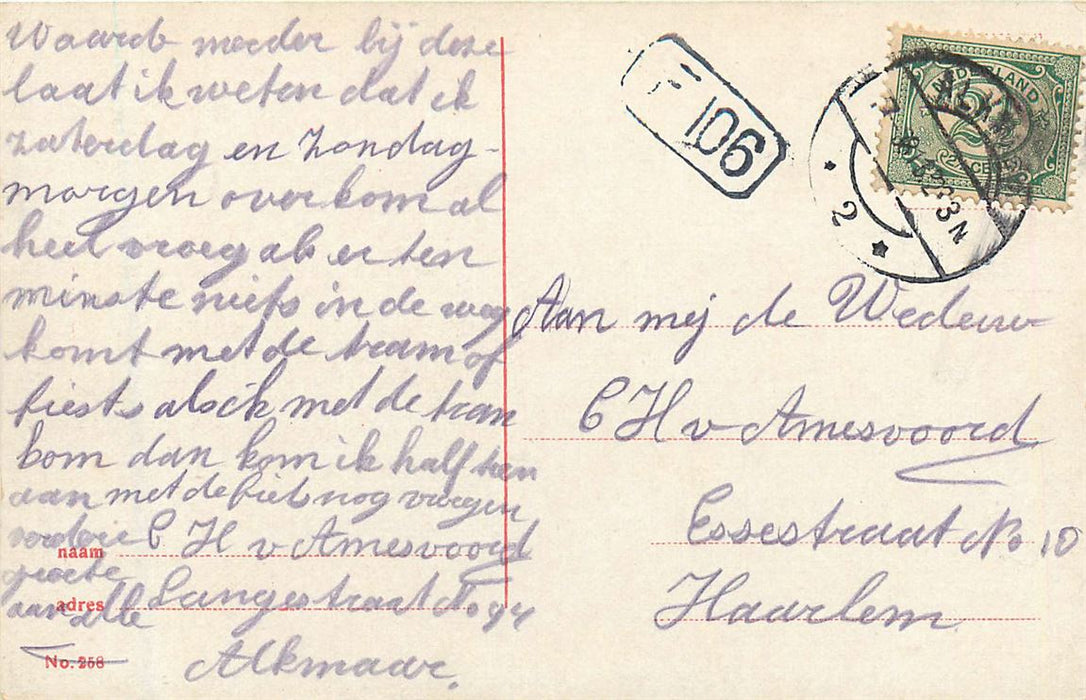 Waarde moeder bij deze
laat ik weten dat ik
zaterdag en zondag-
morgen overkom al
heel vroeg als er ten
minste niets in de weg
komt met de tram of
fiets als ik met de tram
kom dan kom ik half tien
aan met de fiets nog vroegen
groete
aan alle
naam C H v Amesvoord
adres Langestraat No 94
Alkmaar.
No. 258
F 106
NEDERLAND
2½ CENT
ALKMAAR
2
Aan mej de Weduw
C H v Amesvoord
Essestraat No 10
Haarlem